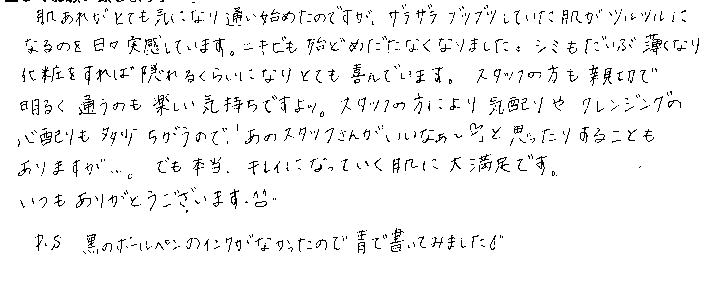 肌あれがとても気になり通い始めたのですが、ザラザラブツブツしていた肌がツルツルに
なるのを日々実感しています。ニキビも殆どめだたなくなりました。シミもだいぶ薄くなり
化粧をすれば隠れるくらいになりとても喜んでいます。スタッフの方も親切で
明るく通うのも楽しい気持ちですよッ。スタッフの方により気配りやクレンジングの
心配りも多少ちがうので、「あのスタッフさんがいいなぁ〜」と思ったりすることも
ありますが…。でも本当、キレイになっていく肌に大満足です。
いつもありがとうございます。^^
P.S 黒のボールペンのインクがなかったので青で書いてみました